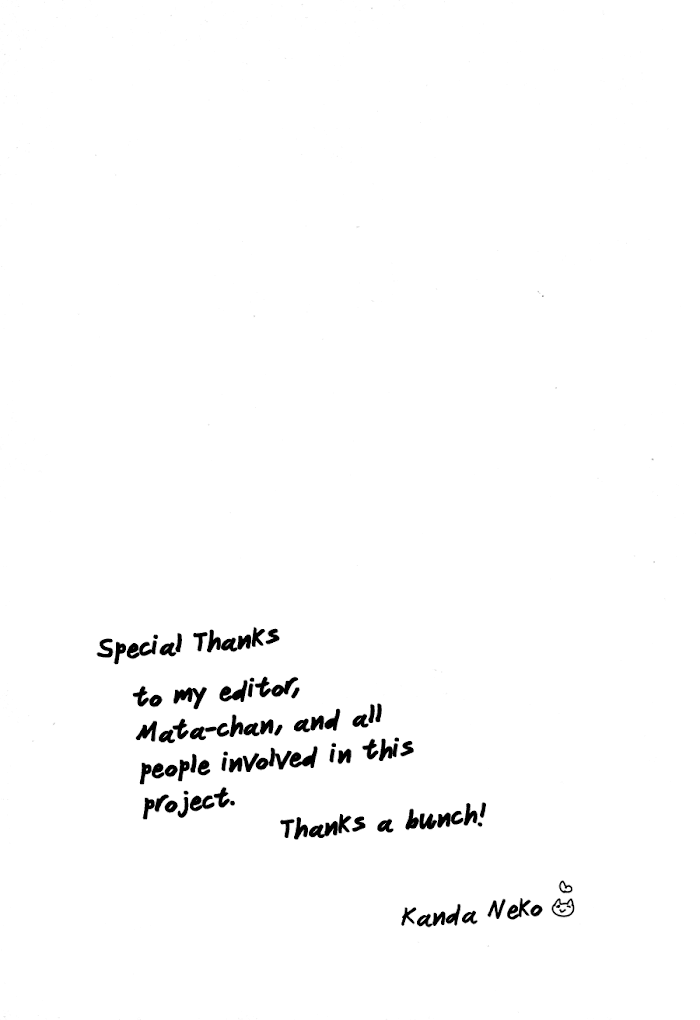 Special Thanks
to my editor,
Mata-chan, and all
people involved in this
project.
Thanks a bunch!
Kanda Neko